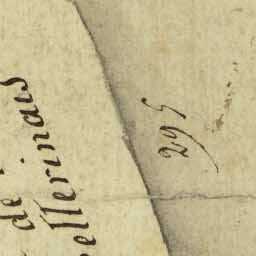 de
ellerinais
295